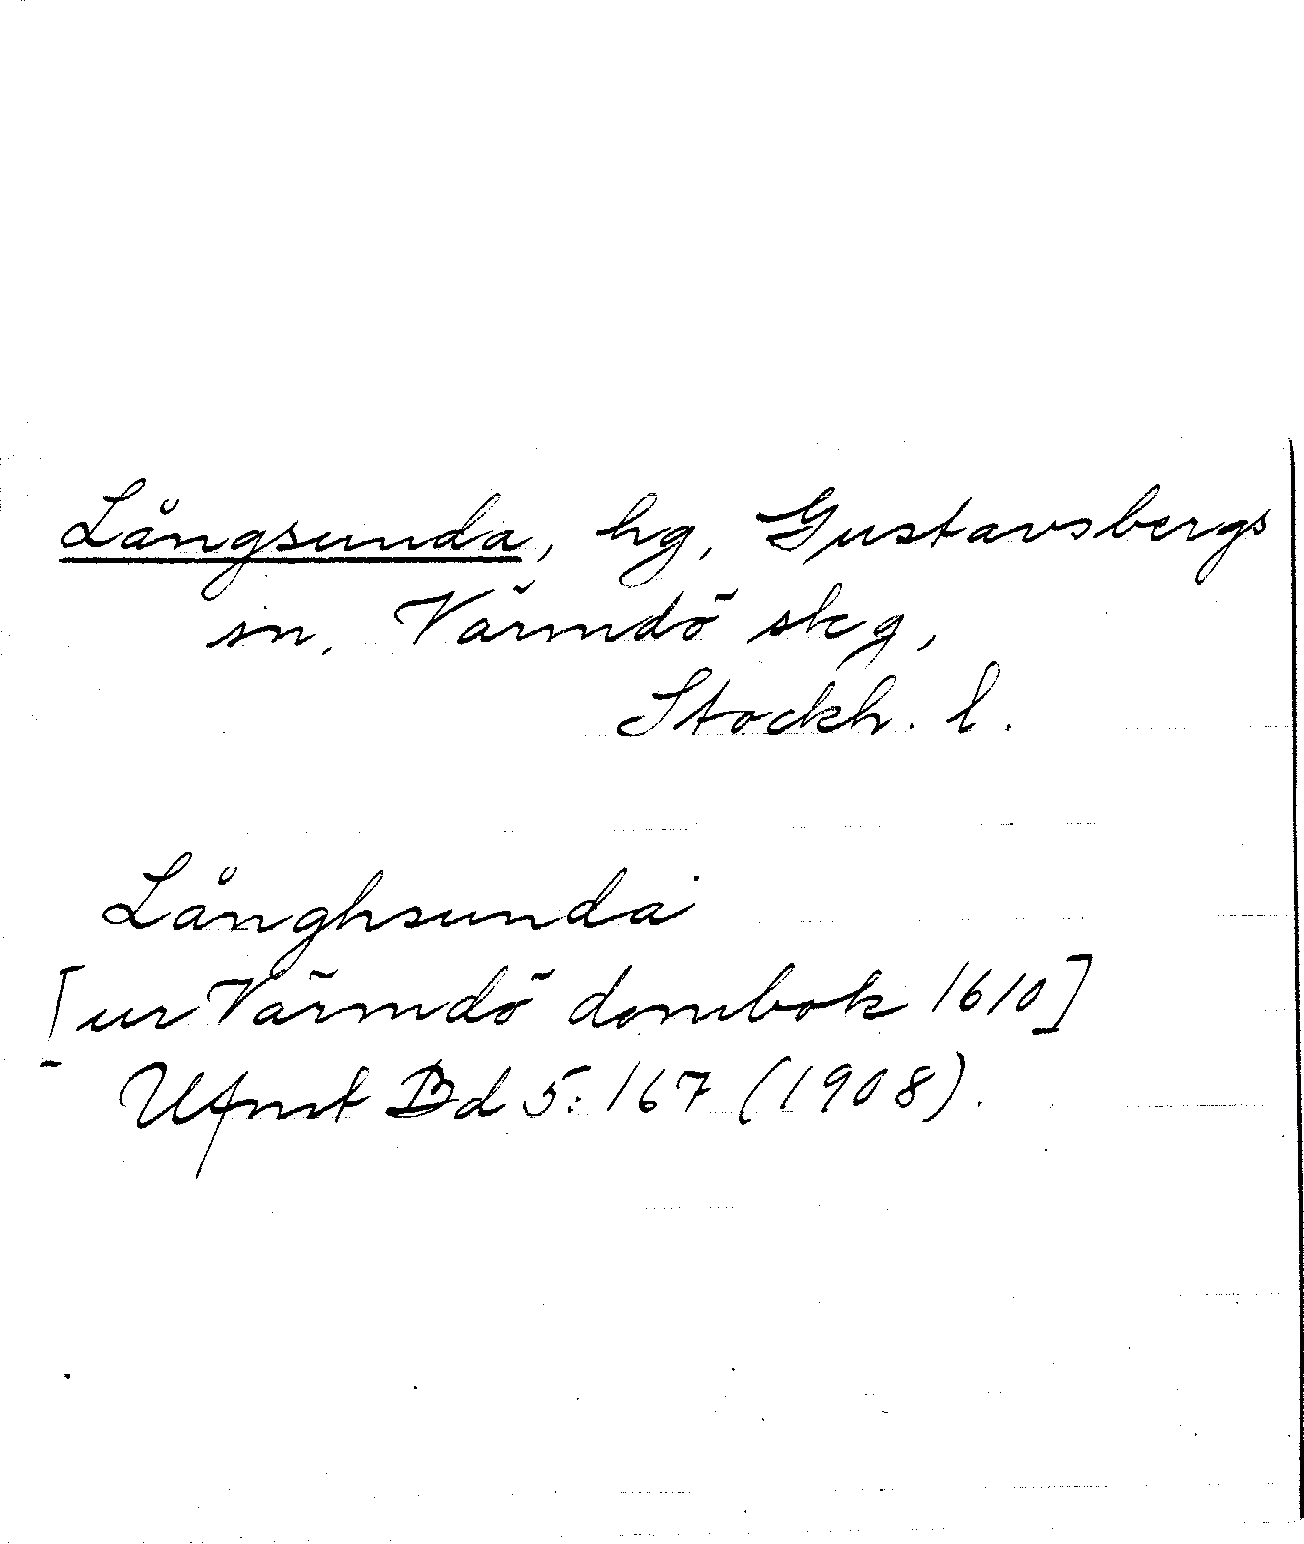 Långsunda, hg, Gustavsbergs
sn, Värmdö skg,
Stockh. l.
Långhsunda
[ur Värmdö dombok 1610]
Ufmt Bd 5: 167 (1908).